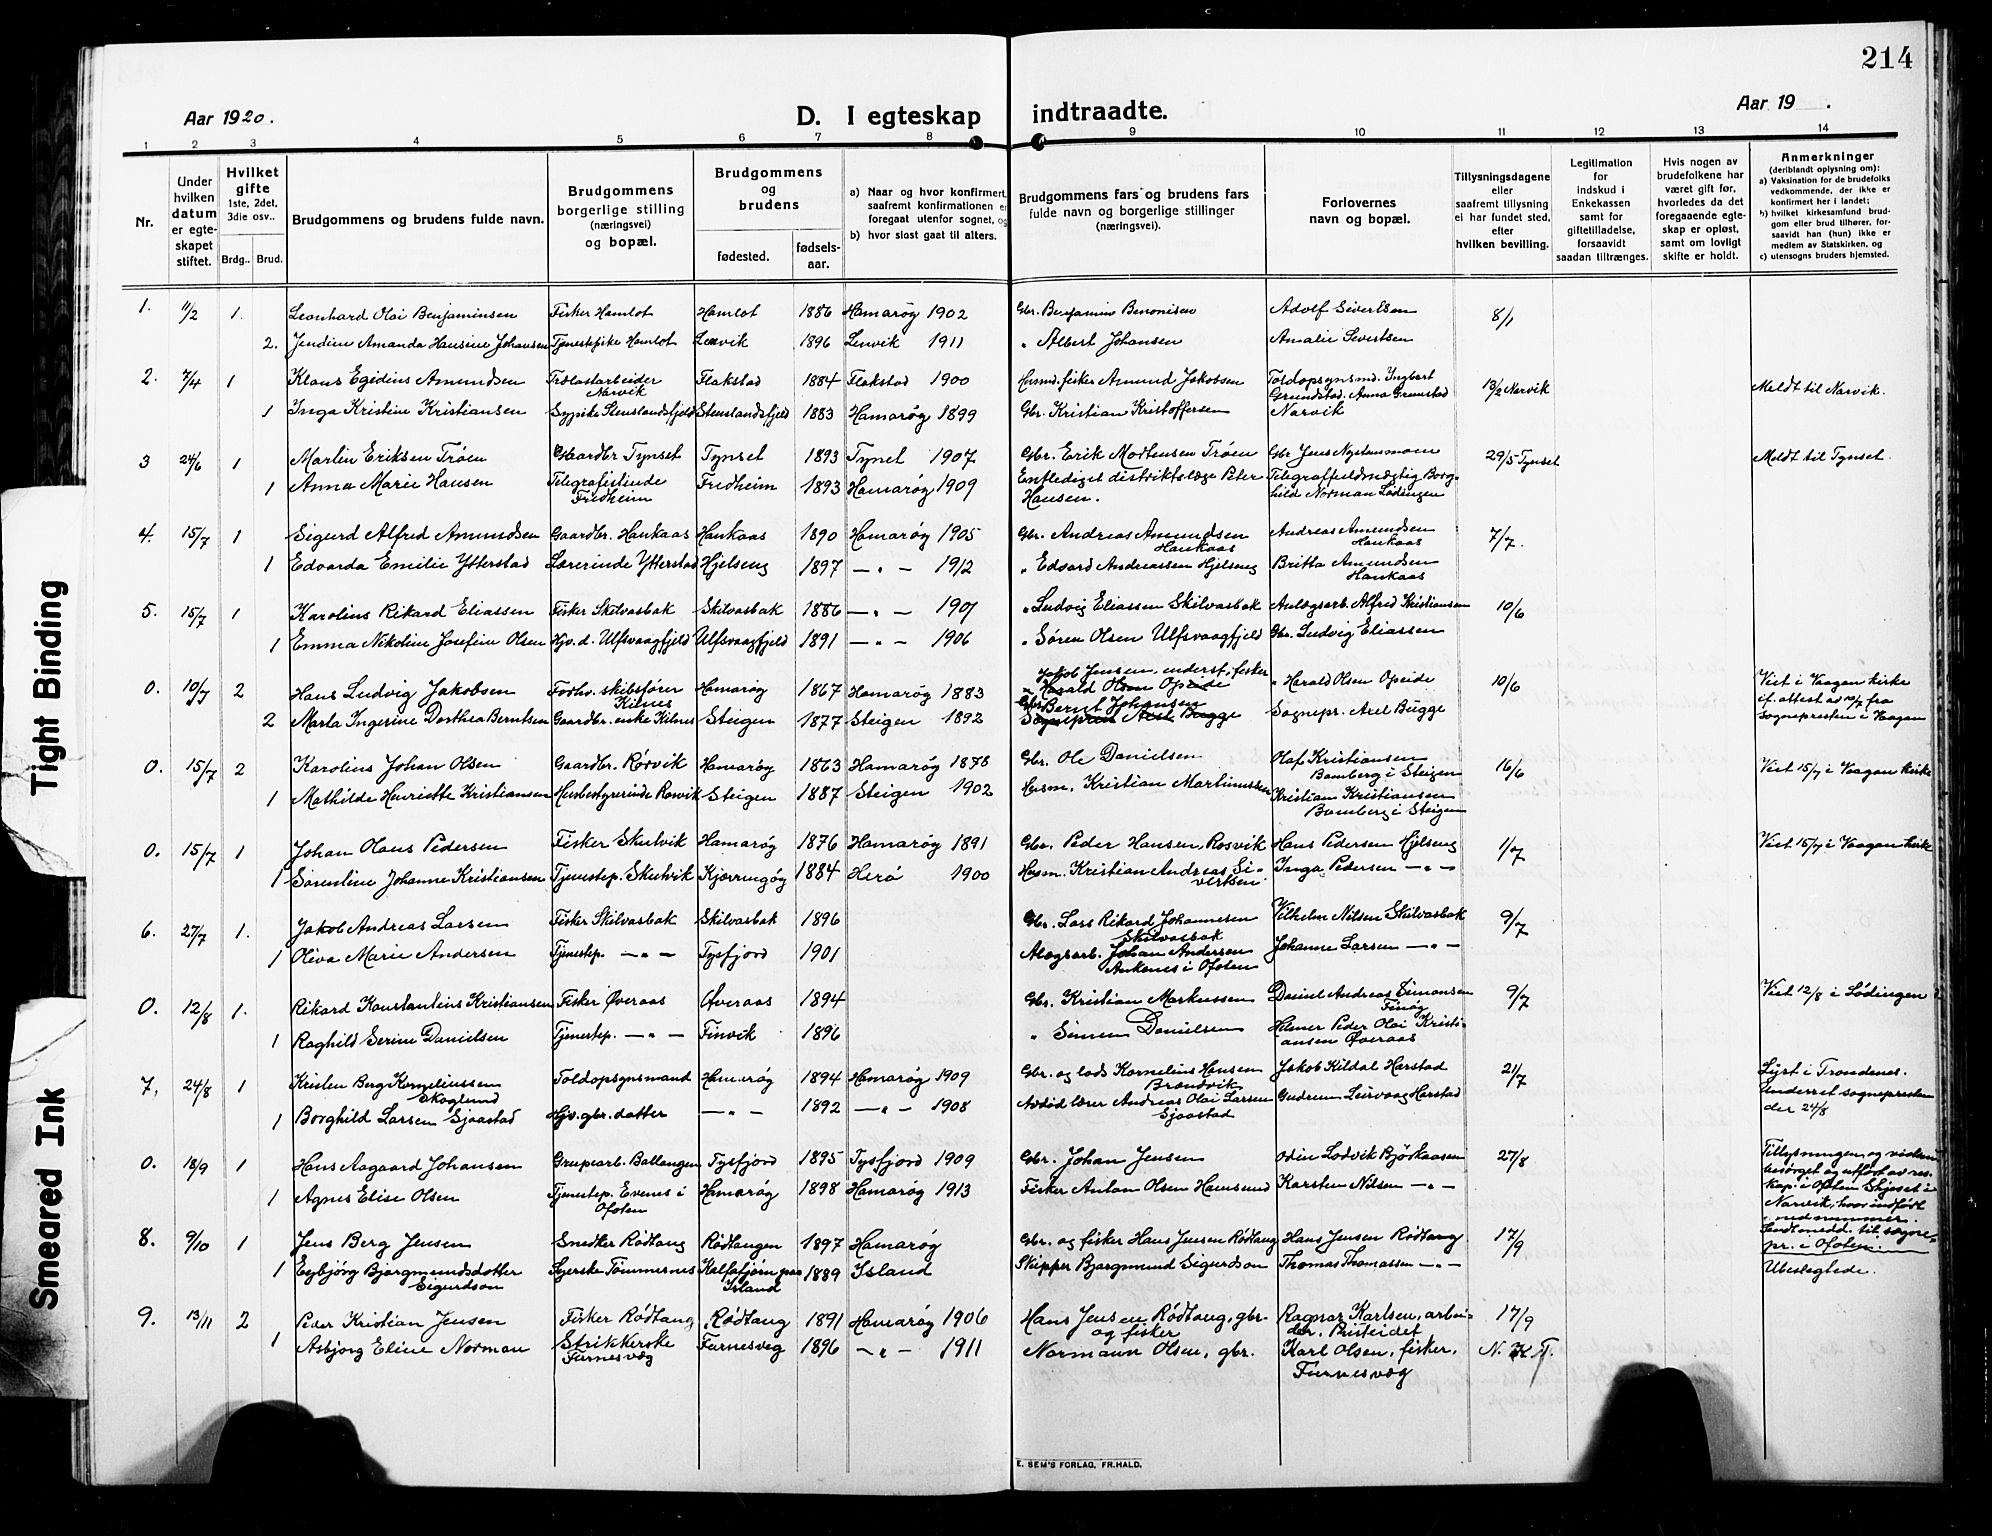 214
Aar 1920.
D. I egteskap indtraadte.
Aar 19 .
1 2 3 4 5 6 7 8 9 10 11 12 13 14
Nr.
Under hvilken datum er egteskapet stiftet.
Hvilket gifte 1ste, 2det, 3die osv..
Brdg.. Brud.
Brudgommens og brudens fulde navn.
Brudgommens borgerlige stilling (næringsvei) og bopæl.
Brudgommens og brudens
fødested.
fødsels-aar.
a) Naar og hvor konfirmert, saafremt konfirmationen er foregaat utenfor sognet, og
b) hvor sidst gaat til alters.
Brudgommens fars og brudens fars fulde navn og borgerlige stillinger (næringsvei).
Forlovernes navn og bopæl.
Tillysningsdagene eller saafremt tillysning ei har fundet sted, efter hvilken bevilling.
Legitimation for indskud i Enkekassen samt for giftetilladelse, forsaavidt saadan tiltrænges.
Hvis nogen av brudefolkene har været gift før, hvorledes da det foregaaende egteskap er opløst, samt om lovligt skifte er holdt.
Anmerkninger
(deriblandt oplysning om):
a) Vaksination for de brudefolks vedkommende, der ikke er konfirmert her i landet;
b) hvilket kirkesamfund brudgom eller brud tilhører, forsaavidt han (hun) ikke er medlem av Statskirken, og
c) utensogns bruders hjemsted.
1. 11/2 1. Leonhard Olai Benjaminsen Fisker Hamlot Hamlot 1886 Hamarøg 1902 Gbr. Benjamin Benonisen Adolf Sivertsen 8/1
2. Jendine Amanda Hansine Johansen Tjenestepike Hamlot Lenvik 1896 Lenvik 1911 " Albert Johansen Amalie Sivertsen
2. 7/4 1 Klaus Egidius Amundsen Trælastarbeider Narvik Flakstad 1884 Flakstad 1900 Husmd. fisker Amund Jakobsen Toldopsynsmd. Ingbert Grundstad. Anna Grunstad Narvik 13/2 Narvik Meldt til Narvik.
1 Inga Kristine Kristiansen Sypike Stenslandsfjeld Stenslandsfjeld 1883 Hamarøg 1899 Gbr. Kristian Kristoffersen
3 24/6 1 Martin Eriksen Trøen Gaardbr Tynset Tynset 1893 Tynset 1907 Gbr. Erik Mortensen Trøen Gbr Jens Nystumoen 29/5 Tynset Meldt til Tynset.
1 Anna Marie Hansen Telegrafistinde Fredheim Fredheim 1893 Hamarøg 1909 Entlediget distriktslæge Peter Hansen. Telegraffuldmægtig Borghild Norman Lødingen
4. 15/7 1 Sigurd Alfred Amundsen Gaardbr. Haukaas Haukaas 1890 Hamarøg 1905 Gbr. Andreas Amundsen Haukaas Andreas Amundsen Haukaas 7/7.
1 Edvarda Emilie Ytterstad Lærerinde Ytterstad Hjelseng 1897 — " — 1912 " Edvard Andreassen Hjelseng Britta Amundsen Haukaas
5. 15/7 1 Karolius Rikard Eliassen Fisker Skilvasbak Skilvasbak 1886 — " — 1901 " Ludvig Eliassen Skilvasbak Anlægsarb. Alfred Kristiansen 10/6
1 Emma Nikoline Josefine Olsen Hjv. d. Ulfsvaagfjeld Ulfsvaagfjeld 1891 — " — 1906 " Søren Olsen Ulfsvaagfjeld Gbr. Ludvig Eliassen
0. 10/7 2 Hans Ludvig Jakobsen Forhv. skibsfører Kilnes Hamarøg 1867 Hamarøg 1883 Jakob Jensen, inderst, fisker Harald Olsen Opeide " Harald Olsen Opeide 10/6 Viet i Vaagan kirke if. attest av 10/7 fra sognepresten i Vaagan
2 Marta Ingerine Dorthea Berntsen Gaardbr. enke Kilnes Steigen 1877 Steigen 1892 Gbr. Bernt Johansen Sogneprest Axel Bugge Sognepr. Axel Bugge
0. 15/7 2 Karolius Johan Olsen Gaardbr. Rørvik Hamarøy 1863 Hamarøg 1878 Gbr. Ole Danielsen Olaf Kristiansen Bamberg i Steigen 16/6 Viet 15/7 i Vaagan kirke
1 Mathilde Henriette Kristiansen Husbestyrerinde Rørvik Steigen 1887 Steigen 1902 Husm. Kristian Martinussen Kristian Kristiansen Bomberg i Steigen
0. 15/7 1 Johan Olaus Pedersen Fisker Skutvik Hamarøg 1876 Hamarøg 1891 Gbr. Peder Hansen, Rosvik Hans Pedersen Hjelseng 1/7 Viet 15/7 i Vaagan kirke
1 Sørentine Johanne Kristiansen Tjenestep. Skutvik Kjærringøg 1884 Herø 1900 Husm. Kristian Andreas Sivertsen Inga Pedersen — " —
6. 27/7 1. Jakob Andreas Larsen Fisker Skilvasbak Skilvasbak 1896 Gbr. Lars Rikard Johannesen Skilvasbak Vilhelm Nilsen Skilvasbak 9/7
1 Oliva Marie Andersen Tjenestep. — " — Tysfjord 1901 Alægsarb. Johan Andersen Ankenes i Ofoten Johanne Larsen — " —
0. 12/8 1. Rikard Konstantius Kristiansen Fisker Øveraas Øveraas 1894 Gbr. Kristian Markussen Daniel Andreas Simonsen Finøg 9/7 Viet 12/8 i Lødingen
1 Raghild Serine Danielsen Tjenestep. — " — Finvik 1896 " Simen Danielsen Helmer Peder Olai Kristiansen Øveraas
7, 24/8 1 Kristen Berg Korneliussen Skoglund Toldopsynsmand Hamarøg 1894 Hamarøg 1909 Gbr. og lods Kornelius Hansen Brandvik Jakob Kildal Harstad 21/7 Lyst i Trondenes. Underret sognepresten der 24/8
1 Borghild Larsen Sjaastad Hjv. gbr. datter — " — 1892 — " — 1908 Avdød lærer Andreas Olai Larsen Sjaastad Gudrun Leirvaag Harstad
0. 18/9 1 Hans Aagaard Johansen Grupearb. Ballangen Tysfjord 1895 Tysfjord 1909 Gbr. Johan Jensen Odin Lodvik Bjørkaasen 27/8 Tillysningen og vielsen besørget og utført av res. kap. i Ofoten Skjeset i Narvik, hvor indført med nummer. Sendt medd. til sognepr. i Ofoten.
1 Agnes Elise Olsen Tjenestep. Evenes i Ofoten Hamarøg 1898 Hamarøg 1913 Fisker Anton Olsen Hamsund Karsten Nilsen — " —
8. 9/10 1 Jens Berg Jensen Snedker Rødtang Rødtangen 1897 Hamarøg Gbr. og fisker Hans Jensen Rødtang Hans Jensen Rødtang 17/9
1 Eybjörg Bjargmundsdotter Sigurdson Syerske Tømmernes Kalfafjørn paa Island 1889 Island Skipper Bjargmund Sigurdson Thomas Thomassen — " — Ubeslegtede.
9. 13/11 2 Peder Kristian Jensen Fisker Rødtang Rødtang 1891 Hamarøg 1906 Hans Jensen Rødtang, gbr. og fisker Ragnar Karlsen, arbeider, Presteidet 17/9
1 Asbjørg Eline Norman Strikkerske Furnesvæg Furnesveg 1896 — " — 1911 Normann Olsen, gbr. Karl Olsen, fisker, Furnesvæg N. K. T.
E. SEM'S FORLAG, FR.HALD.
Tight Binding
Smeared Ink